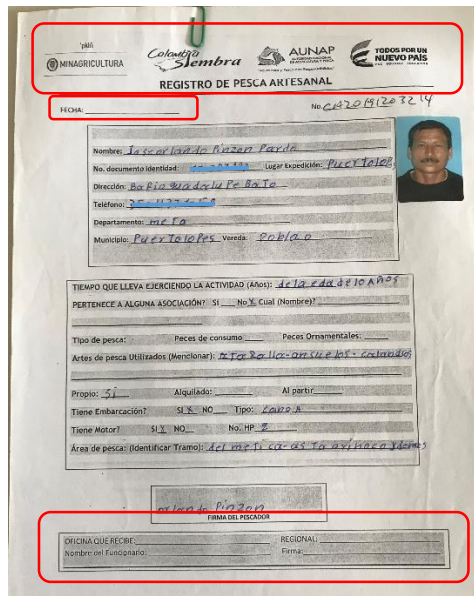 MINAGRICULTURA
Colombia Siembra
AUNAP
TODOS POR UN NUEVO PAÍS
REGISTRO DE PESCA ARTESANAL
FECHA:
No.
Nombre: Pinzon Pardo
No. documento identidad: Lugar Expedición: Puerto Lopes
Dirección: Bario guadalupe Bajo
Teléfono:
Departamento: meta
Municipio: Puerto lopes Vereda: Poblao
TIEMPO QUE LLEVA EJERCIENDO LA ACTIVIDAD (Años): de la eda de 10 Años
PERTENECE A ALGUNA ASOCIACIÓN? SI No X Cual (Nombre)?
Tipo de pesca: Peces de consumo Peces Ornamentales:
Artes de pesca Utilizados (Mencionar): ataRalla-ansuelos-calandios
Propio: Si Alquilado: Al partir
Tiene Embarcación? SI X NO Tipo: canoA
Tiene Motor? SI X NO No. HP
Área de pesca: (Identificar Tramo): del metica-asta orinoco
Pinzon
FIRMA DEL PESCADOR
OFICINA QUE RECIBE: REGIONAL:
Nombre del Funcionario: Firma: